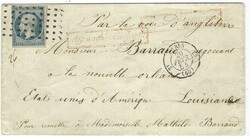 Par la voie d'angleterre
Monsieur Barraud negociant
à la nouvelle orléans
Etats unis d'Amérique Louisiane
Pour remettre à Mademoiselle Mathilde Barraud